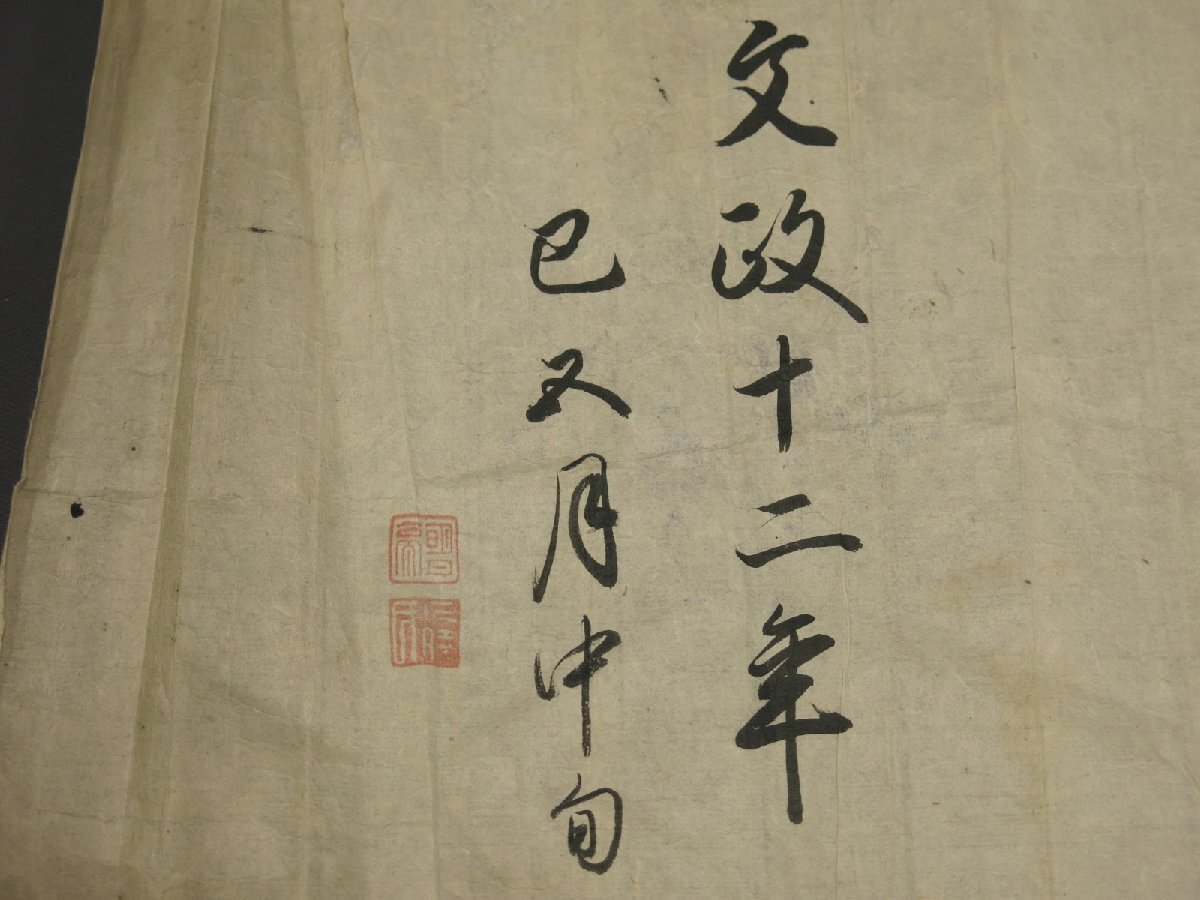 文政十二年
巳五月中旬